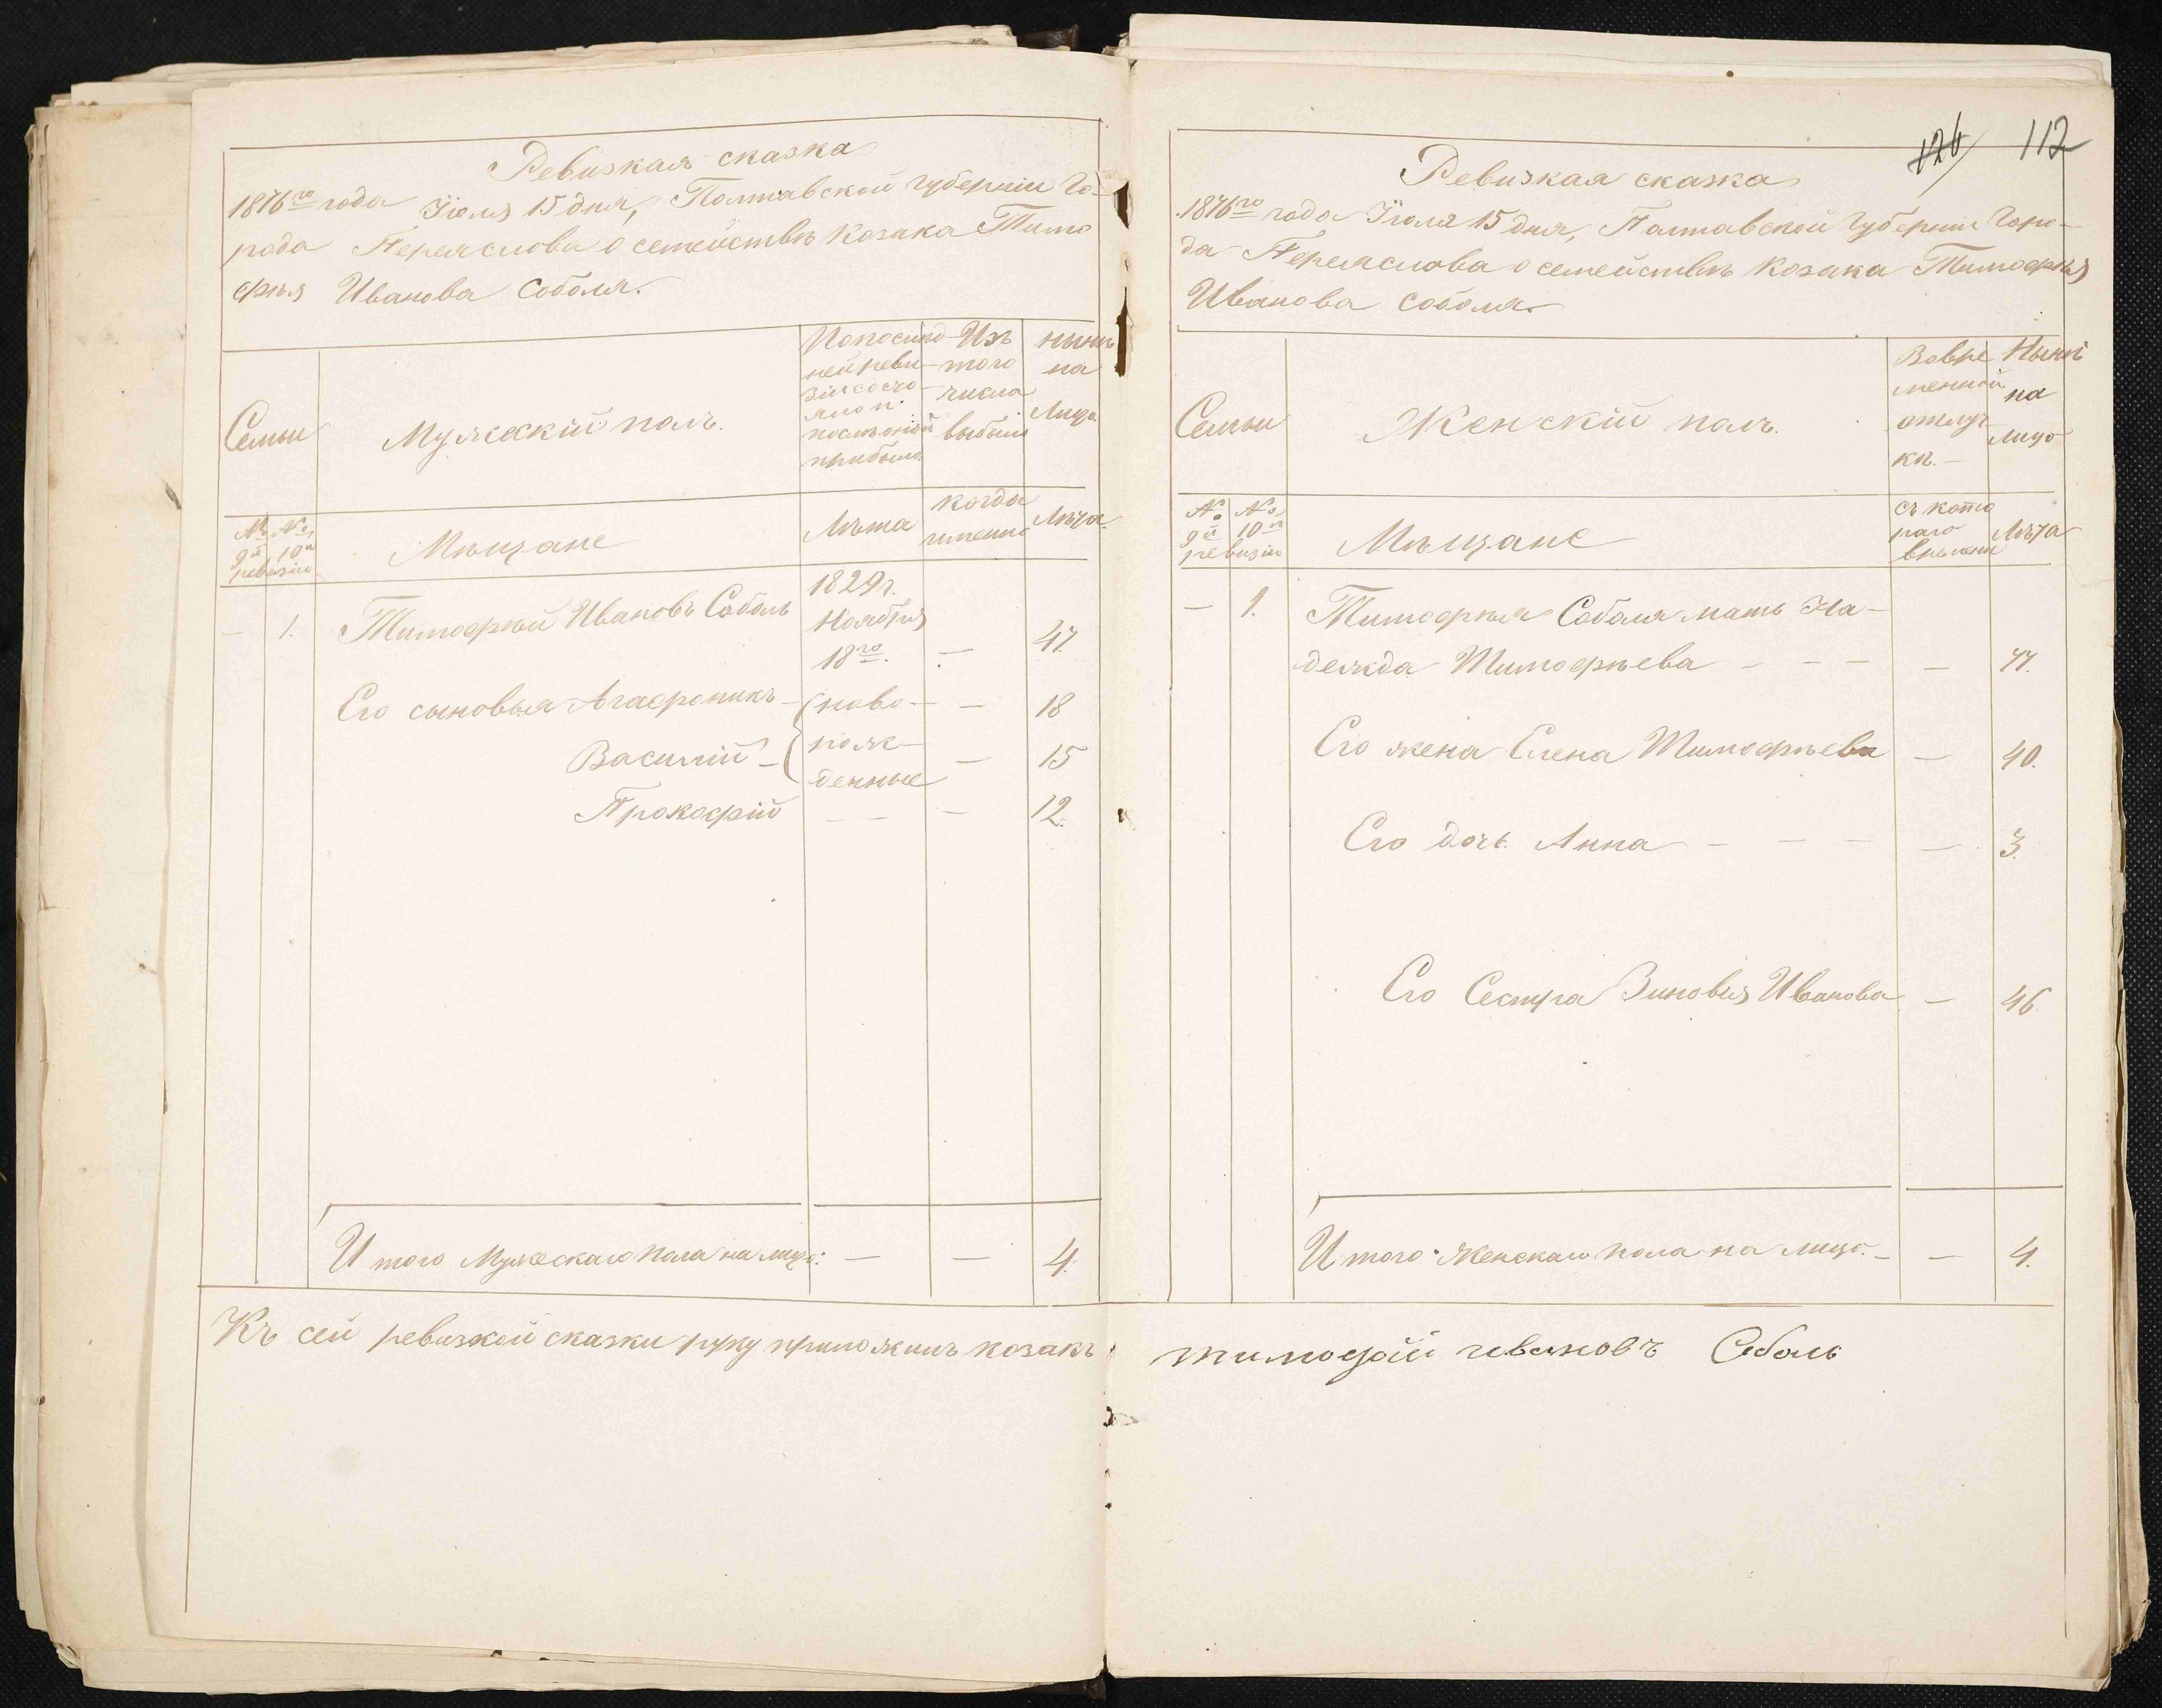 Ревизкая сказка
1876го года Іюля 15 дня, Полтавской губерніи Го-
рода Переяслова о семействѣ Козака Тимо
фѣя Иванова Соболя.
Семьи
Мужескій полъ.
По послѣд
ней реви-
зіи состо-
яло и
послѣ оной
прибыло
Изъ
того
числа
выбыло
нынѣ
на
Лицо.
№ № 
9й 10й
ревизіи
Мѣщане
Лѣта
когда
именно
Лѣта.
— 1. Тимофей Ивановъ Соболь
1829 г.
Ноября
18го. — 47.
Его сыновья Агафоникъ — ново- — 18
Василій — рож- — 15
денные
Прокофій — — — 12.
И того Мужескаго пола на лицо: — — 4.
Къ сей ревизкой сказки руку приложилъ козакъ
126 112
Ревизкая сказка
1876го года Іюля 15 дня, Полтавской Губерніи Горо-
да Переяслова о семействѣ Козака Тимофѣя
Иванова Соболя.
Семьи
Женскій полъ.
Во вре
менной
отлуч
кѣ. —
Нынѣ
на
лицо
№ № 
9й 10й
ревизіи
Мѣщане
съ кото
раго
времени
Лѣта
— 1. Тимофѣя Соболя мать На-
дежда Тимофѣева — — — — 77.
Его жена Елена Тимофѣева — 40.
Его дочь Анна — — — — 3.
Его Сестра Зиновія Иванова — 46
И того Женскаго пола на лицо. — — 4.
тимофій ивановъ Соболь